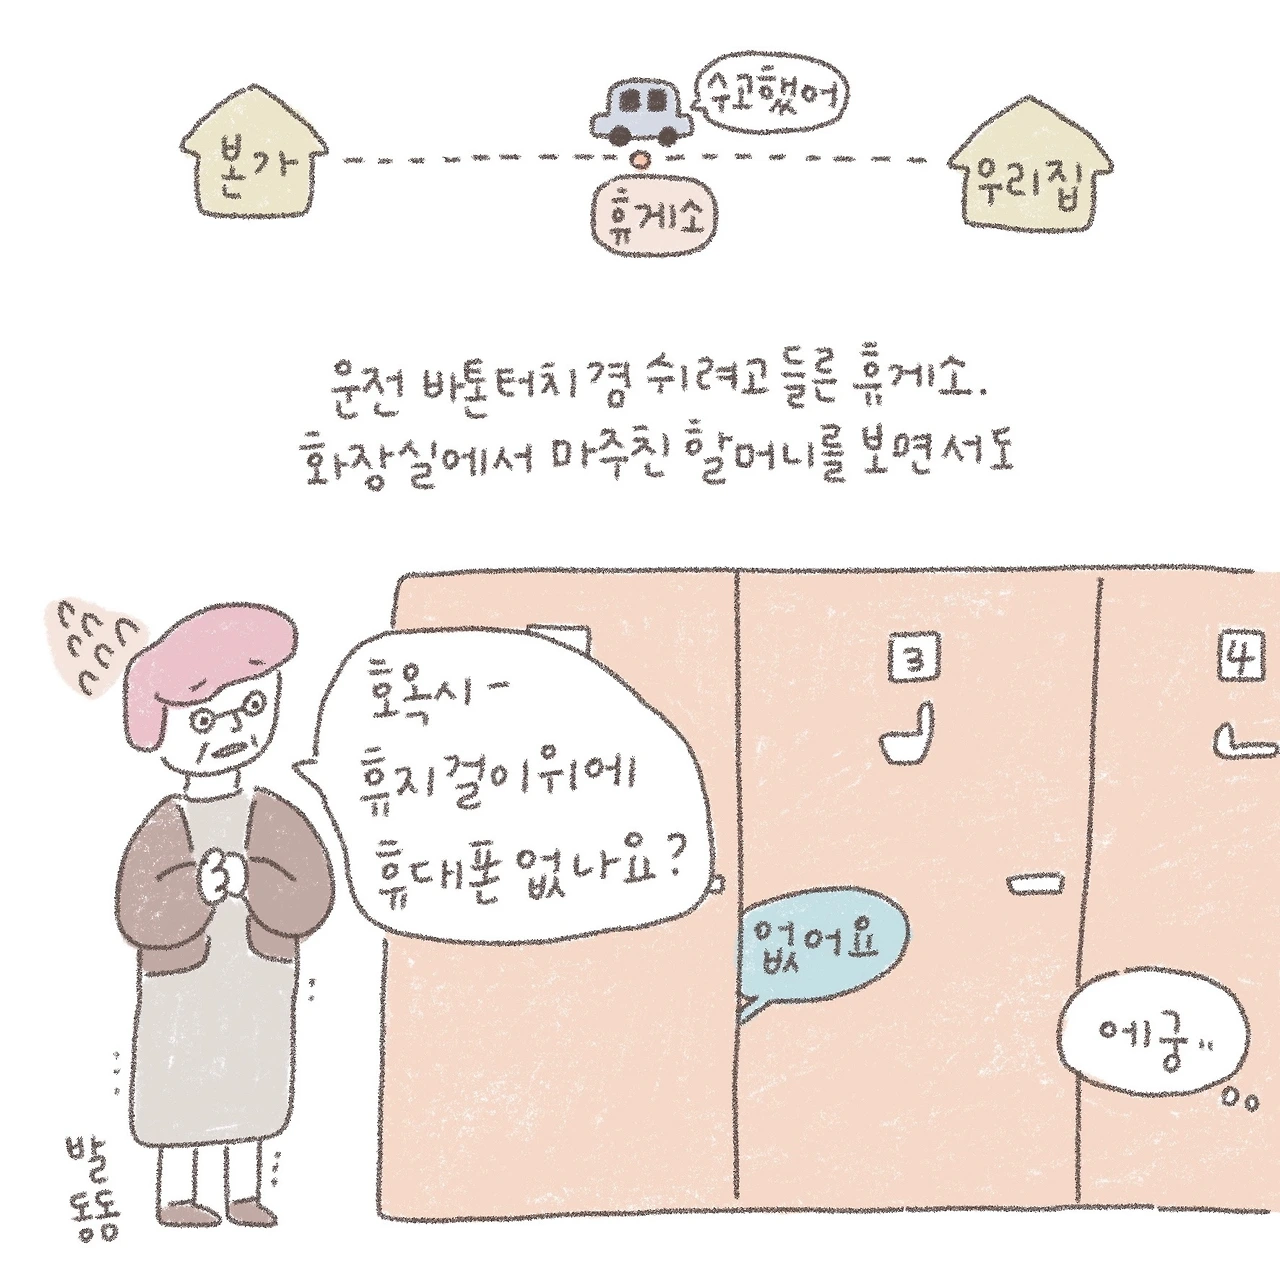 수고했어
본가
우리집
휴게소
운전 바톤터치 겸 쉬려고 들른 휴게소.
화장실에서 마주친 할머니를 보면서도
3
4
혹옥시-
휴지걸이 위에
휴대폰 없나요?
없어요
에궁..
발
동동